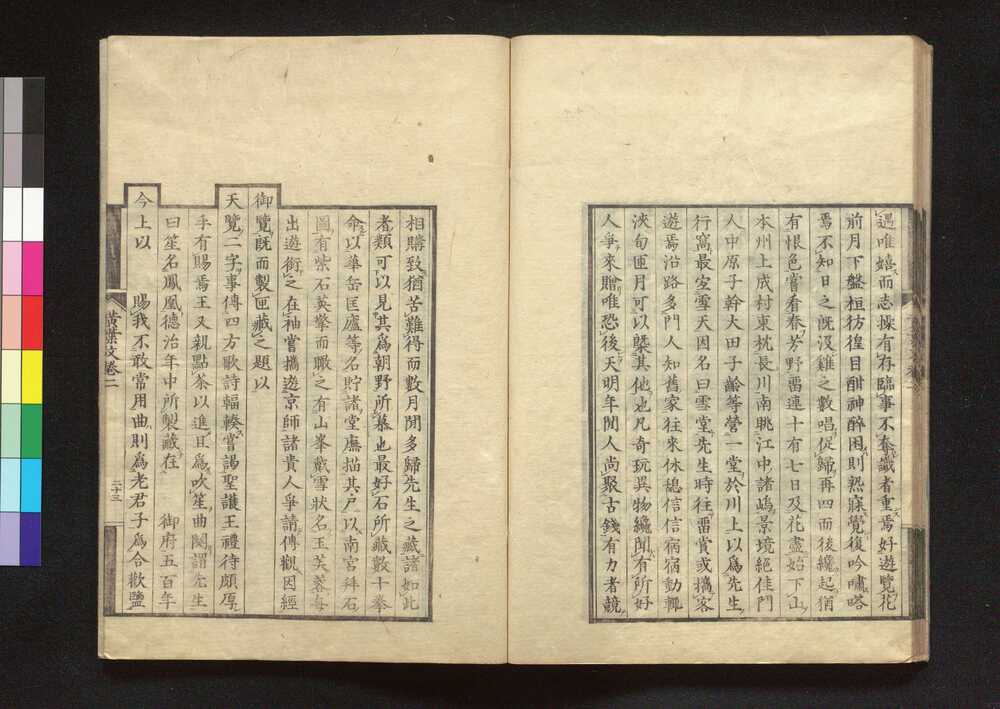 遇唯嬉而志操有存臨事不奪識者重焉好遊覽花
前月下盤桓彷徨目酣神醉困則熟寐覺復吟嘯略
焉不知日之既沒雞之數唱促歸再四而後纔起猶
有恨色嘗看春芳野畱連十有七日及花盡始下山
本州上成村東枕長川南眺江中諸嶋景境絕佳門
人中原子幹大田子齡等營一堂於川上以爲先生
行窩最宜雪天因名曰雪堂先生時往畱賞或攜客
遊焉沿路多門人知舊家往來休憩信信宿宿動輒
浹旬匝月可以槩其他也凡奇玩異物纔聞有所好
人爭來贈唯恐後天明年閒人尚聚古錢有力者競
相購致猶苦難得而數月閒多歸先生之藏諸如此
者類可以見其爲朝野所慕也最好石所藏數十拳
命以華岳匡廬等名貯諸堂廡描其戶以南宮拜石
圖有紫石英擎而瞰之有山峯戴雪狀名玉芙蓉每
出遊銜之在袖嘗攜遊京師諸貴人爭請傳觀因經
御覽既而製匣藏之題以
天覽二字事傳四方歌詩輻輳嘗謁聖護王禮待頗厚
手有賜焉王又親點茶以進且爲吹笙曲闋謂先生
曰笙名鳳凰德治年中所製藏在 御府五百年
今上以 賜我不敢常用曲則爲老君子爲合歡鹽
黃葉文卷二
二十三